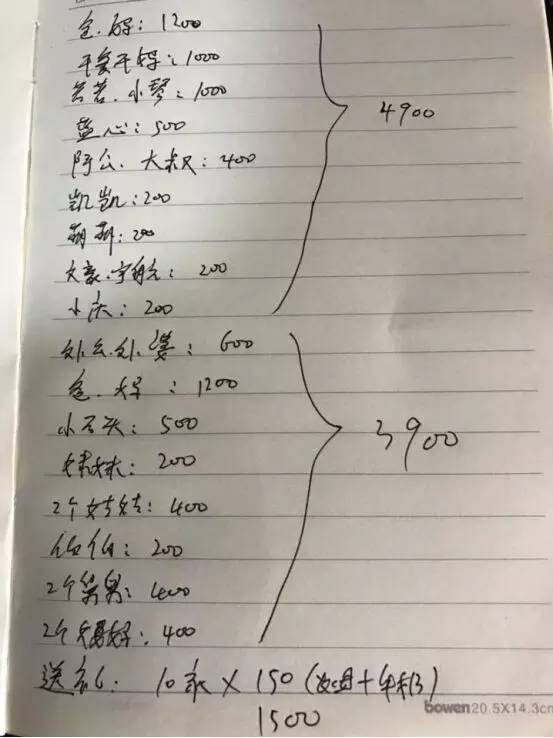 爸.妈: 1200
干爸干妈: 1000
芸芸.小琴: 1000
蓝心: 500
阿公.大叔: 400
凯凯: 200
萌萌: 200
文豪.宇航: 200
小庆: 200
4900
外公.外婆: 600
爸.妈: 1200
小石头: 500
妹妹: 200
2个姑姑: 400
伯伯: 200
2个舅舅: 400
2个: 400
3900
送礼: 10家 × 150 (
1500
bowen20.5X14.3cm